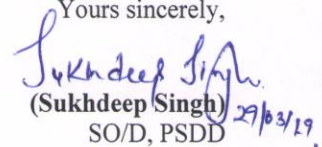 Yours sincerely,
Sukhdeep Singh.
(Sukhdeep Singh) 29/03/19
SO/D, PSDD